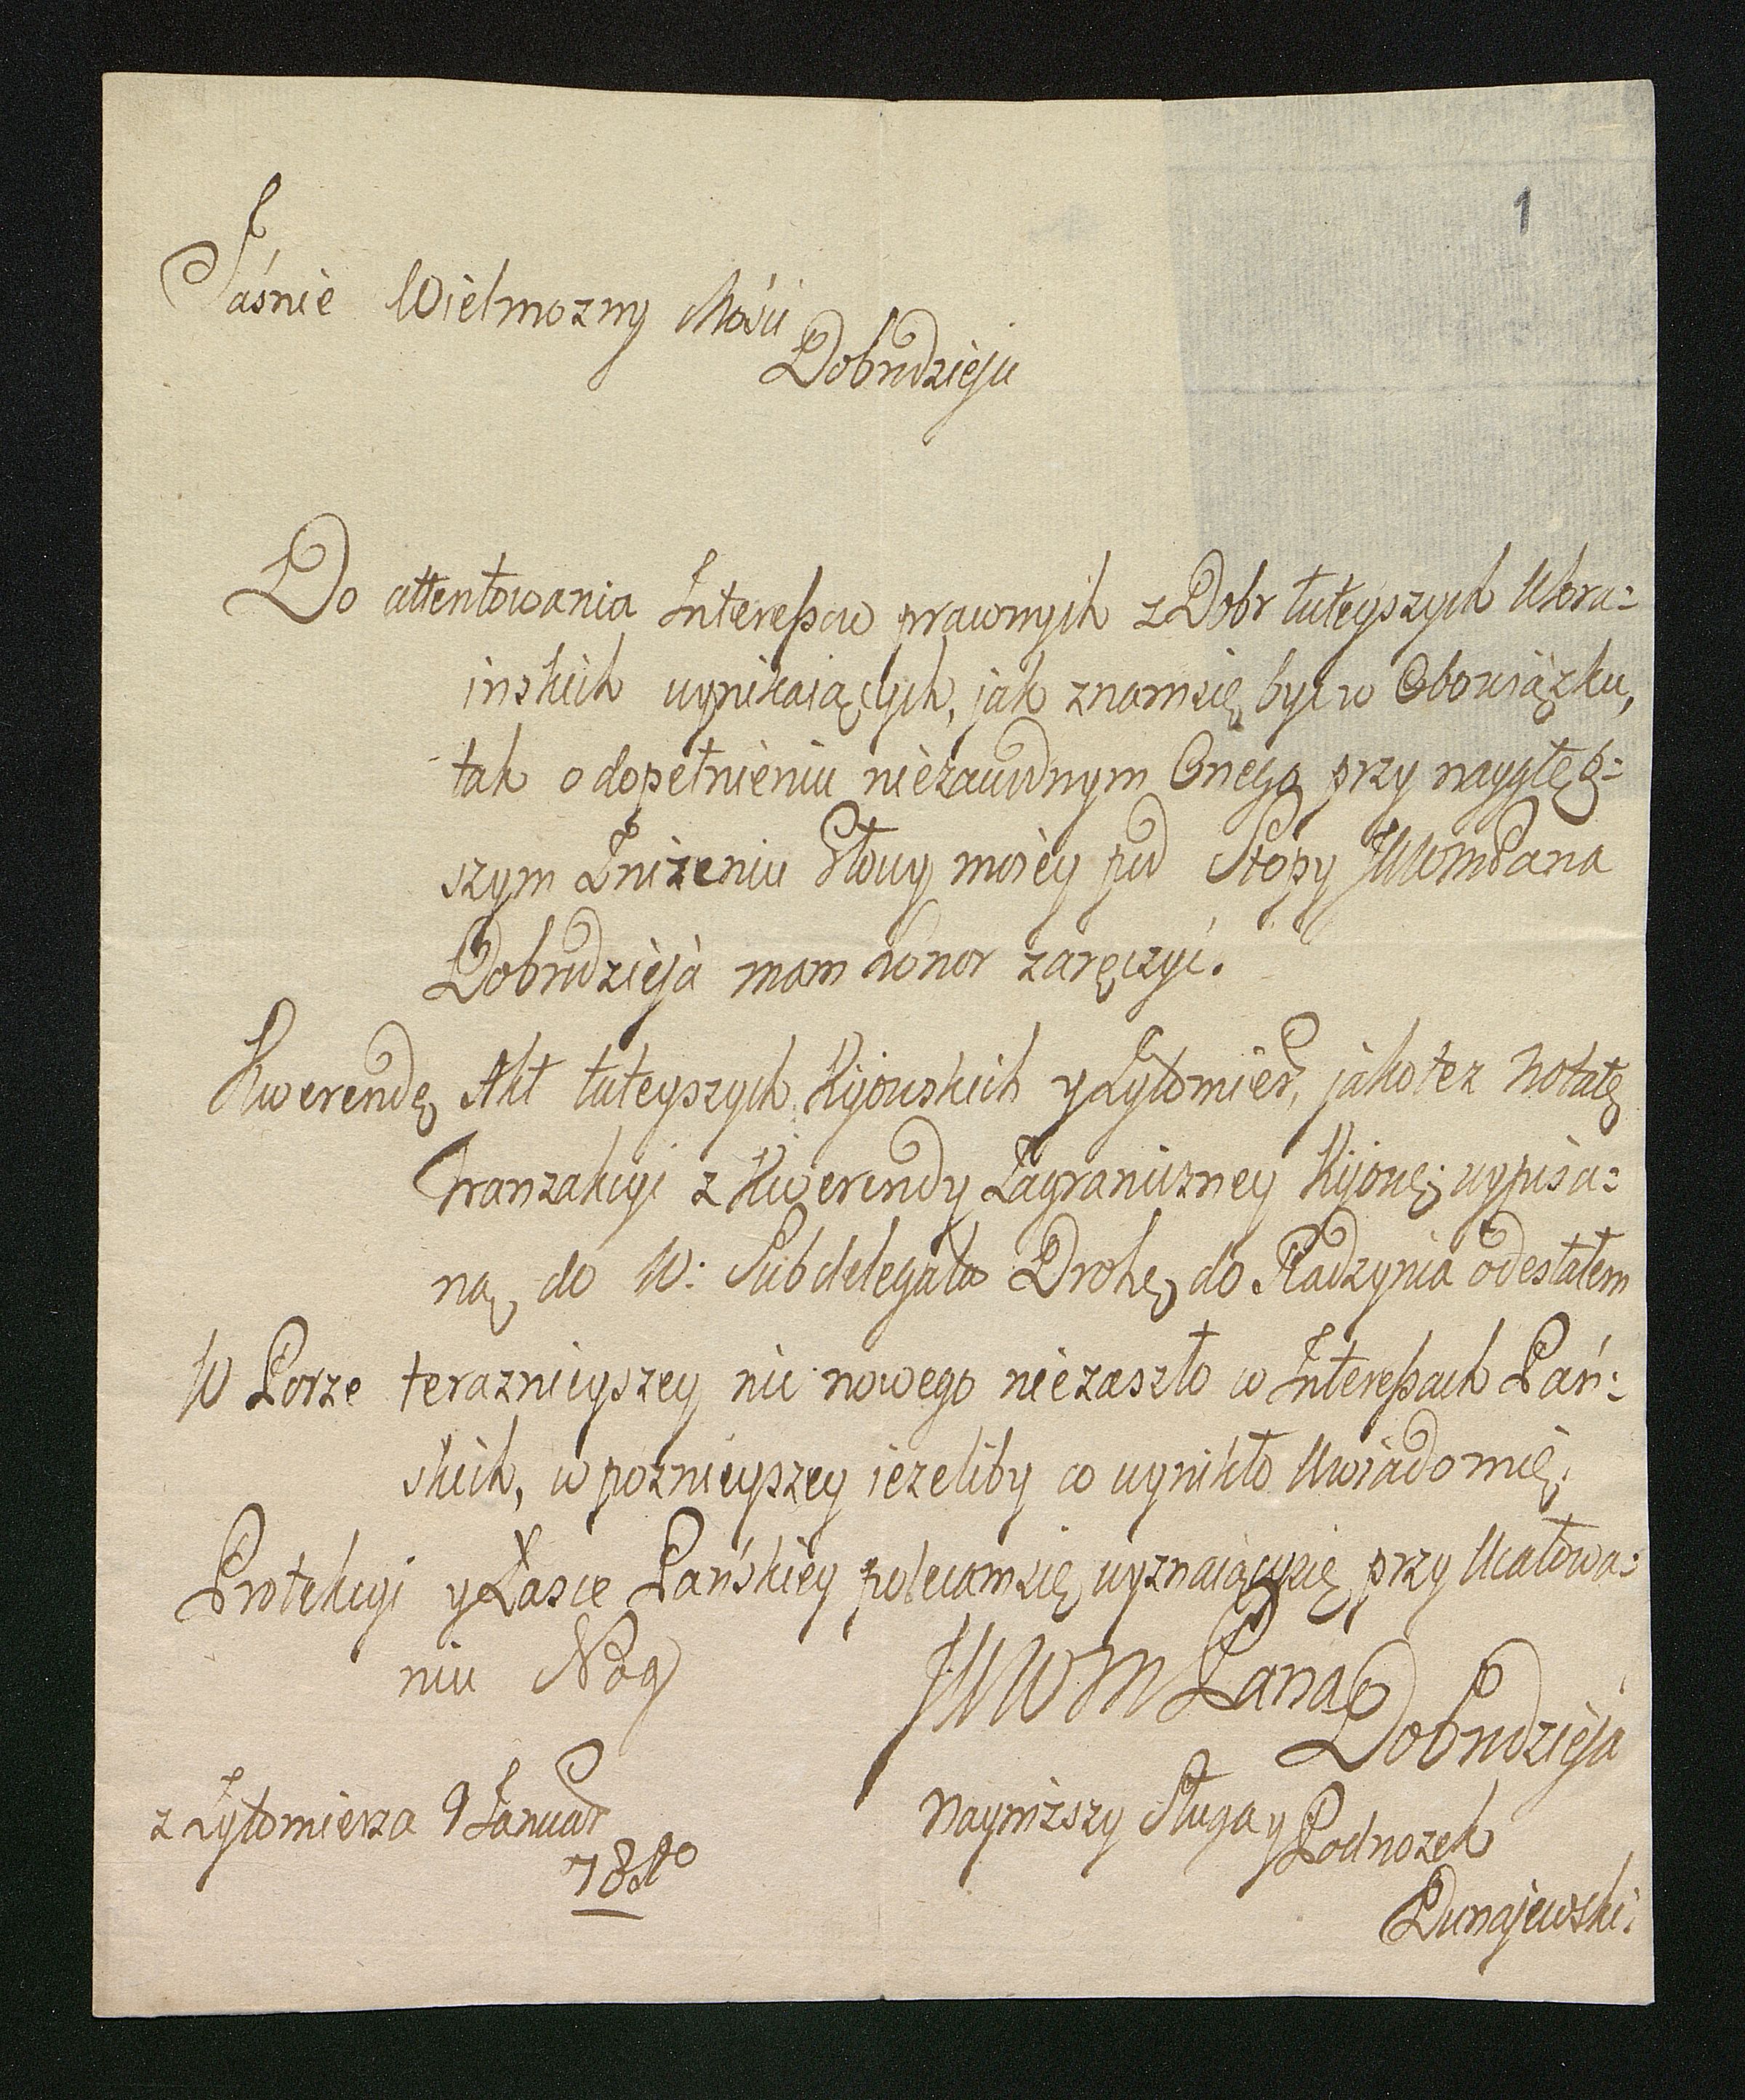 1
Jaśnie Wielmozny Mości
Dobrodzieju
Do attentowania Interessow prawnych z Dobr tuteyszych Ukra:
inskich wynikaiących, jak znam się być w Obowiązku,
tak o dopełnieniu niezawodnym Onego przy naygłęb:
szym Zniżeniu Głowy moiey pod Stopy JWWm Pana
Dobrodzieja mam honor zaręczyć.
Kwerendę Akt tuteyszych Kijowskich y Zytomier, jako tez Notatę
Tranzakcyi z Kwerendy Zagraniczney Kijow: wypisa:
ną do W: Subdelegata Drohę do Radzynia odesłałem
W Porze teraznieyszey nic nowego nie zaszło w Interessach Pań:
skich, w poznieyszey ieżeliby co wynikło Uwiadomię.
Protekcyi y Łasce Pańskiey polecam się wyznaiąc się przy Ucałowa:
niu Nog
JWWM Pana
Dobrodzieja
z Zytomierza 9 Januar
Nayniższy Sługa y Podnozek
Dunajewski